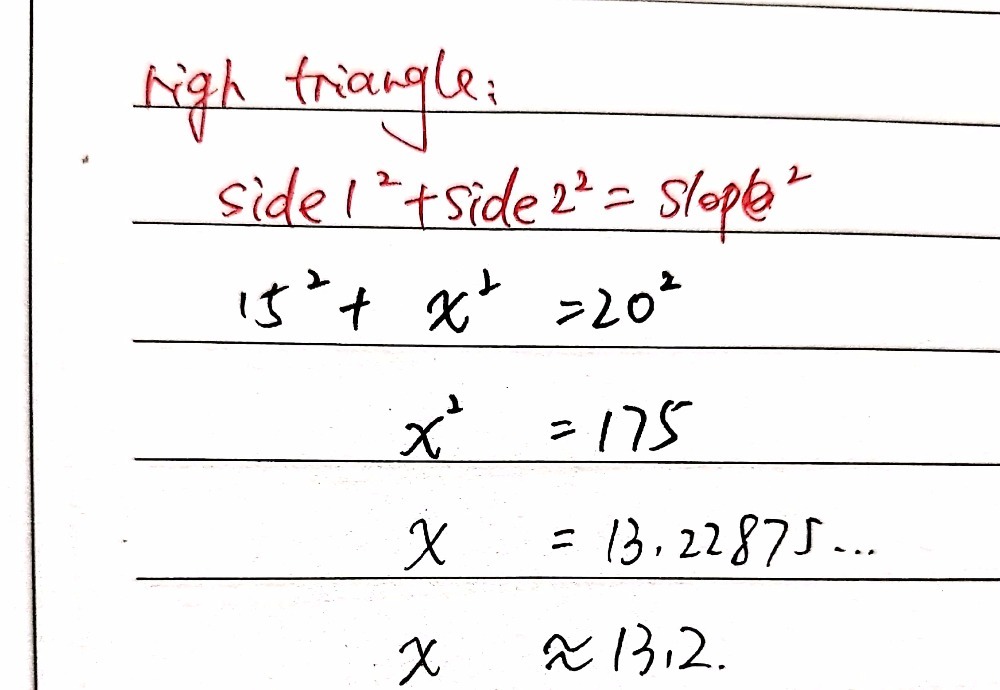 righ triangle:
side 1² + side 2² = slope²
15² + x² = 20²
x² = 175
x = 13.22875...
x ≈ 13.2.